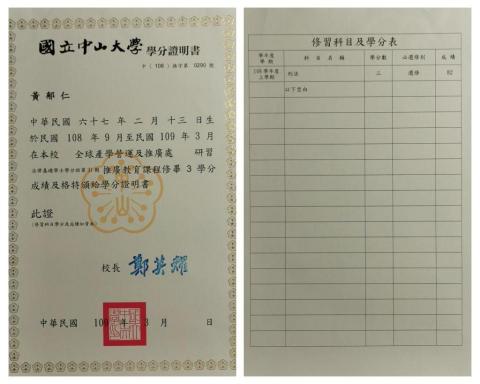 國立中山大學 學分證明書
中(108)推字第 0290 號
黃郁仁
中華民國 六十七年 二月 十三日生
於民國 108 年 9 月至民國 109 年 3 月
在本校 全球產學營運及推廣處 研習
推廣教育課程修畢 3 學分
成績及格特頒給學分證明書
此證
(修習科目學分及成績如背面)
校長 鄭英耀
中華民國 109 年 3 月 日
修習科目及學分表
學年度 學期 科目名稱 學分數 必選修別 成績
108 學年度 上學期 刑法 三 選修 82
以下空白